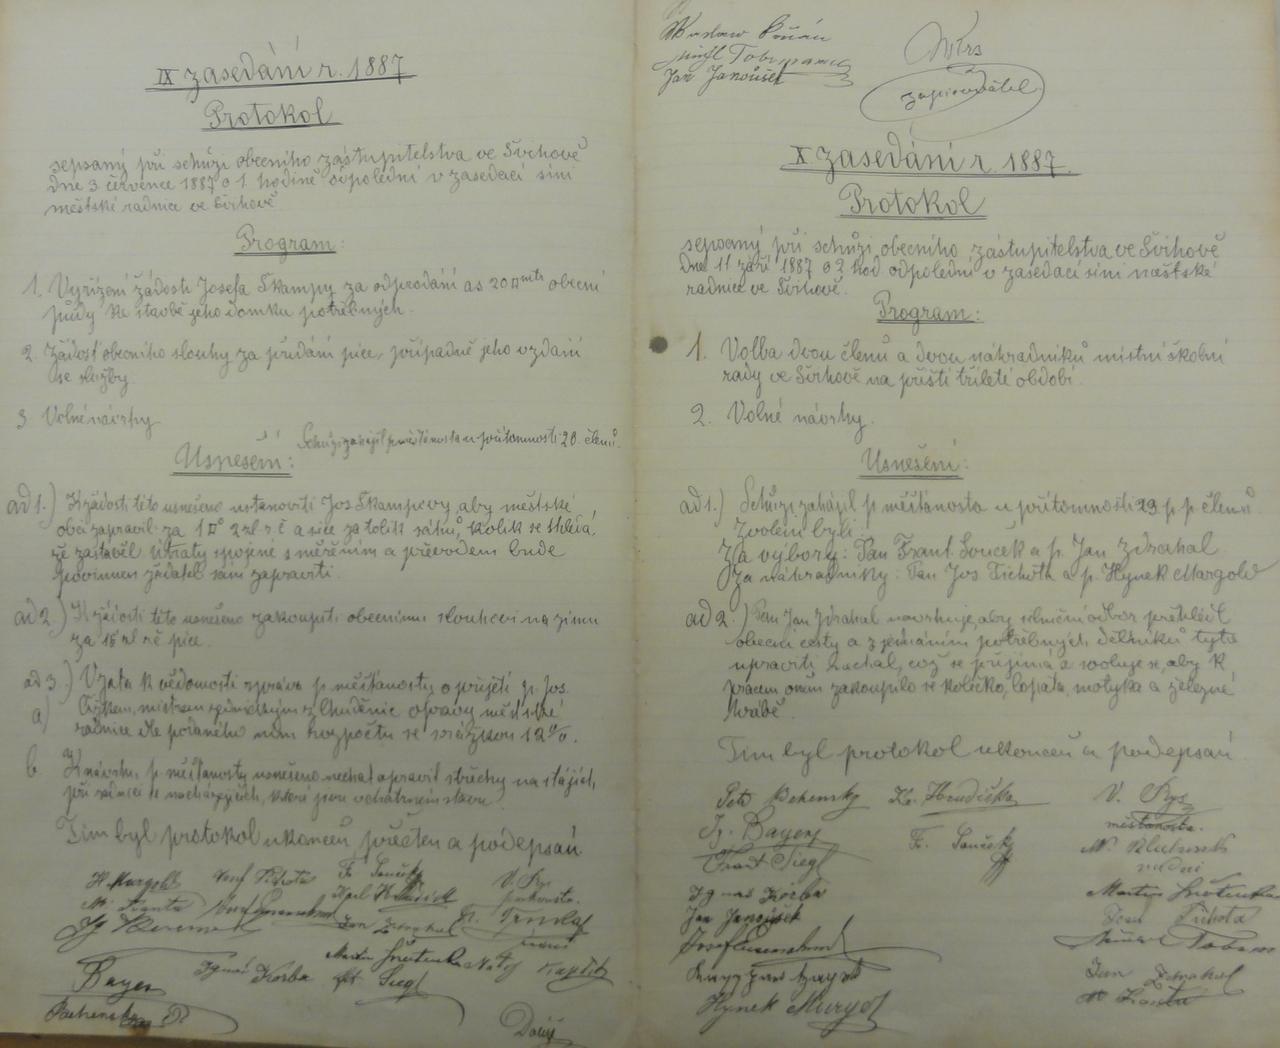 IX zasedání r. 1887
Protokol
sepsaný při schůzi obecního zástupitelstva ve Švihově
dne 3 července 1887 o 1. hodině odpolední v zasedací síni
městské radnice ve Švihově.
Program:
1. Vyřízení žádosti Josefa Škampy za odprodání as 20 □mtr obecní
půdy ke stavbě jeho domku potřebných.
2. Žádost obecního slouhy za přidání píce, případně jeho vzdání
se služby
3 Volné návrhy
Schůzi zahájil p. měšťanosta u přítomnosti 20 členů.
Usnešení:
ad 1.) K žádosti této usnešeno ustanoviti Jos Škampovy, aby městské
obci zapravil za 1 □° 2 zl r. č a sice za tolik sáhů, kolik se shledá,
že zastavěl útraty spojené s měřením a převodem bude
povinnen žádatel sám zapraviti.
ad 2.) K žádosti této usnešeno zakoupiti obecnímu slouhovi na zimu
za 15 zl rč píce.
ad 3.) Vzata k vědomosti zpráva p měšťanosty o přijetí p. Jos.
a) Čížkem, mistrem z Chudenic opravy městské
radnice dle podaného nám rozpočtu se srážkou 12%.
b K návrhu p měšťanosty usnešeno nechat opravit střechy na stájích,
při radnici se nacházejících, které jsou v chatrném stavu.
Tím byl protokol ukončen přečten a podepsán.
H. Margold Josef Tichota Fr Souček V. Rys
M. Karel Hrudička purkmistr.
Jan Zdrahal
Martin
Bayer Ignác Korba Frt. Siegl
Behensky P.
Jan Janoušek
zapisovatel
X zasedání r. 1887.
Protokol
sepsaný při schůzi obecního zástupitelstva ve Švihově
dne 11 září 1887 o 2 hod odpolední v zasedací síni městské
radnice ve Švihově.
Program:
1. Volba dvou členů a dvou náhradníků místní školní
rady ve Švihově na příští tříleté období.
2. Volné návrhy.
Usnešení:
ad 1.) Schůzi zahájil p měšťanosta u přítomnosti 23 p p členů.
Zvoleni byli:
Za výbory: Pan Frant. Souček a p. Jan Zdrahal
Za náhradníky: Pan Jos Tichota a p. Hynek Margold
ad 2.) Pan Jan Zdrahal navrhuje, aby silniční odbor přehlédl
obecní cesty a zjednáním potřebných dělníků tyto
upraviti nechal, což se přijímá a svoluje se, aby k
pracem oněm zakoupilo se kolečko, lopata, motyka a železné
hrábě.
Tím byl protokol ukončen a podepsán.
Petr Behensky Kar. Hrudička V. Rys
Ig. Bayer Fr. Souček měšťanosta.
Frant Siegl
radní
Ignác Korba Martin
Jan Janoušek Tichota
Jan Zdrahal
Hynek Margold M